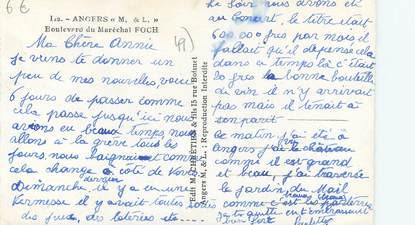 6 €
122. - ANGERS "M. & L." -
Boulevard du Maréchal FOCH
49)
Ma Chère Annie
je viens te donner un
peu de mes nouvelles, voici
6 jours de passer comme
cela passe jusqu'ici nous
avons eu beau temps nous
allons à la grève tous les
jours nous baignais comme
cela change à côté de
dimanche dernier il y a eu une
Kermesse il y avait toutes
des jeux, des loteries etc
Edit M. CHRÉTIEN & fils 15 rue Bodinet
Angers M. & L. : Reproduction Interdite
Le soir nous avons été
au concert, le titre était
600.000 frcs par mois il
fallait qu'il dépense cela
dans ce temps là c'était
20 frcs la bonne bouteille
de vin il n'y arrivait
pas mais il tenait à
son pari
Ce matin j'ai été à
Angers j'ai vu le château
comme il est grand
et beau, j'ai traversé
le jardin du Mail
comme c'est les parterres
Je te quitte en t'embrassant
bien fort